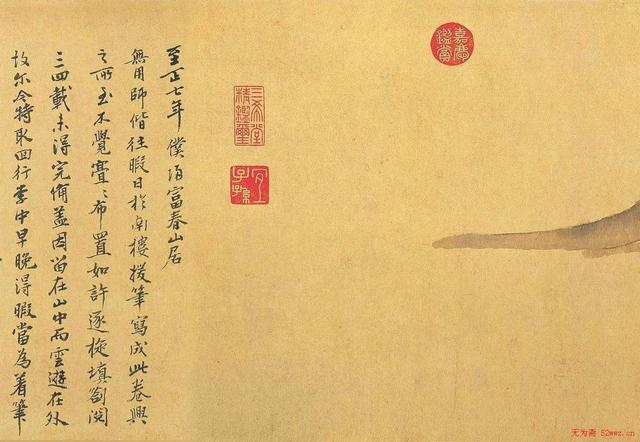 嘉慶鑑賞
三希堂精鑑璽
宜子孫
至正七年僕歸富春山居
無用師偕往暇日於南樓援筆寫成此卷興
之所至不覺亹〻布置如許逐旋填劄閱
三四載未得完備蓋因留在山中而雲遊在外
故尔今特取回行李中早晚得暇當為着筆
无为斋 52wwz.cn